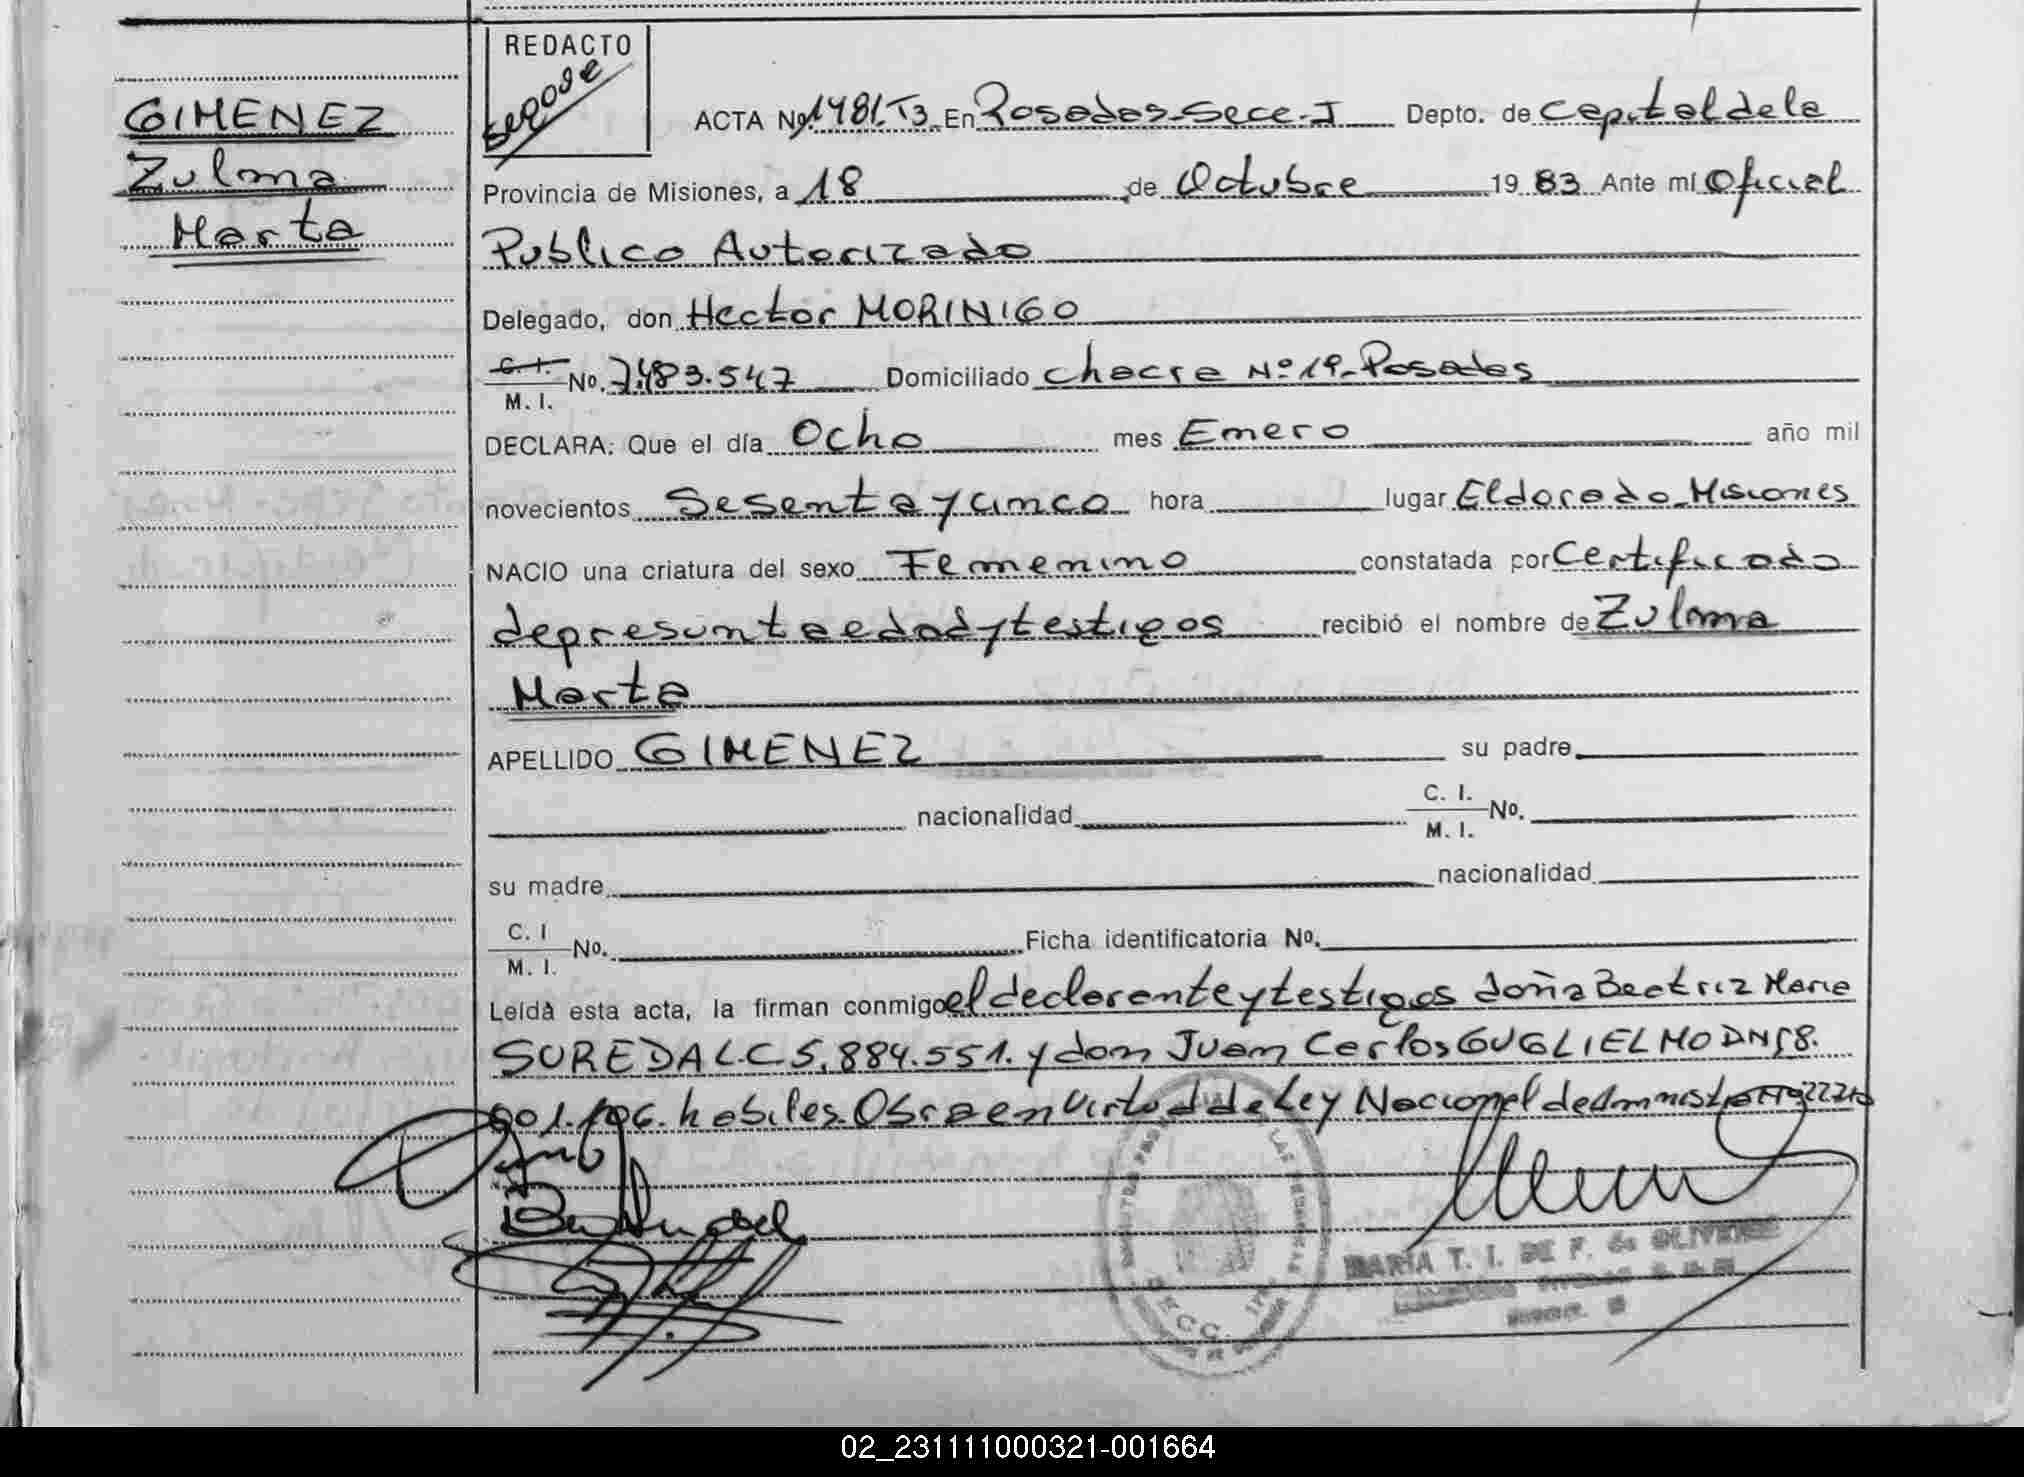 GIMENEZ
Zulma
Marta
REDACTO
ACTA Nº 1481.T3 En Posadas-Secc-I Depto. de Capital de la
Provincia de Misiones, a 18 de Octubre 19 83 Ante mí Oficial
Publico Autorizado
Delegado, don Hector MORINIGO
C. I.
M. I. No. 7.483.547 Domiciliado chacra Nº 19-Posadas
DECLARA: Que el día Ocho mes Enero año mil
novecientos Sesenta y cinco hora lugar Eldorado-Misiones
NACIO una criatura del sexo Femenino constatada por Certificado
de presunta edad y testigos recibió el nombre de Zulma
Marta
APELLIDO GIMENEZ su padre
nacionalidad C. I.
M. I. No.
su madre nacionalidad
C. I
M. I. No. Ficha identificatoria No.
Leída esta acta, la firman conmigo el declarante y testigos doña Beatriz Maria
SUREDA L.C 5.884.551. y don Juan Carlos GUGLIELMO DNI 8.
001.106. habiles. Obra en virtud de Ley Nacional de Amnistia
MARIA T. I. DE F. de
02_231111000321-001664